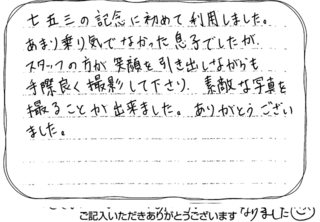 七五三の記念に初めて利用しました。
あまり乗り気でなかった息子でしたが、
スタッフの方が笑顔を引き出しながらも
手際良く撮影して下さり、素敵な写真を
撮ることが出来ました。ありがとうござい
ました。
なりました
ご記入いただきありがとうございます